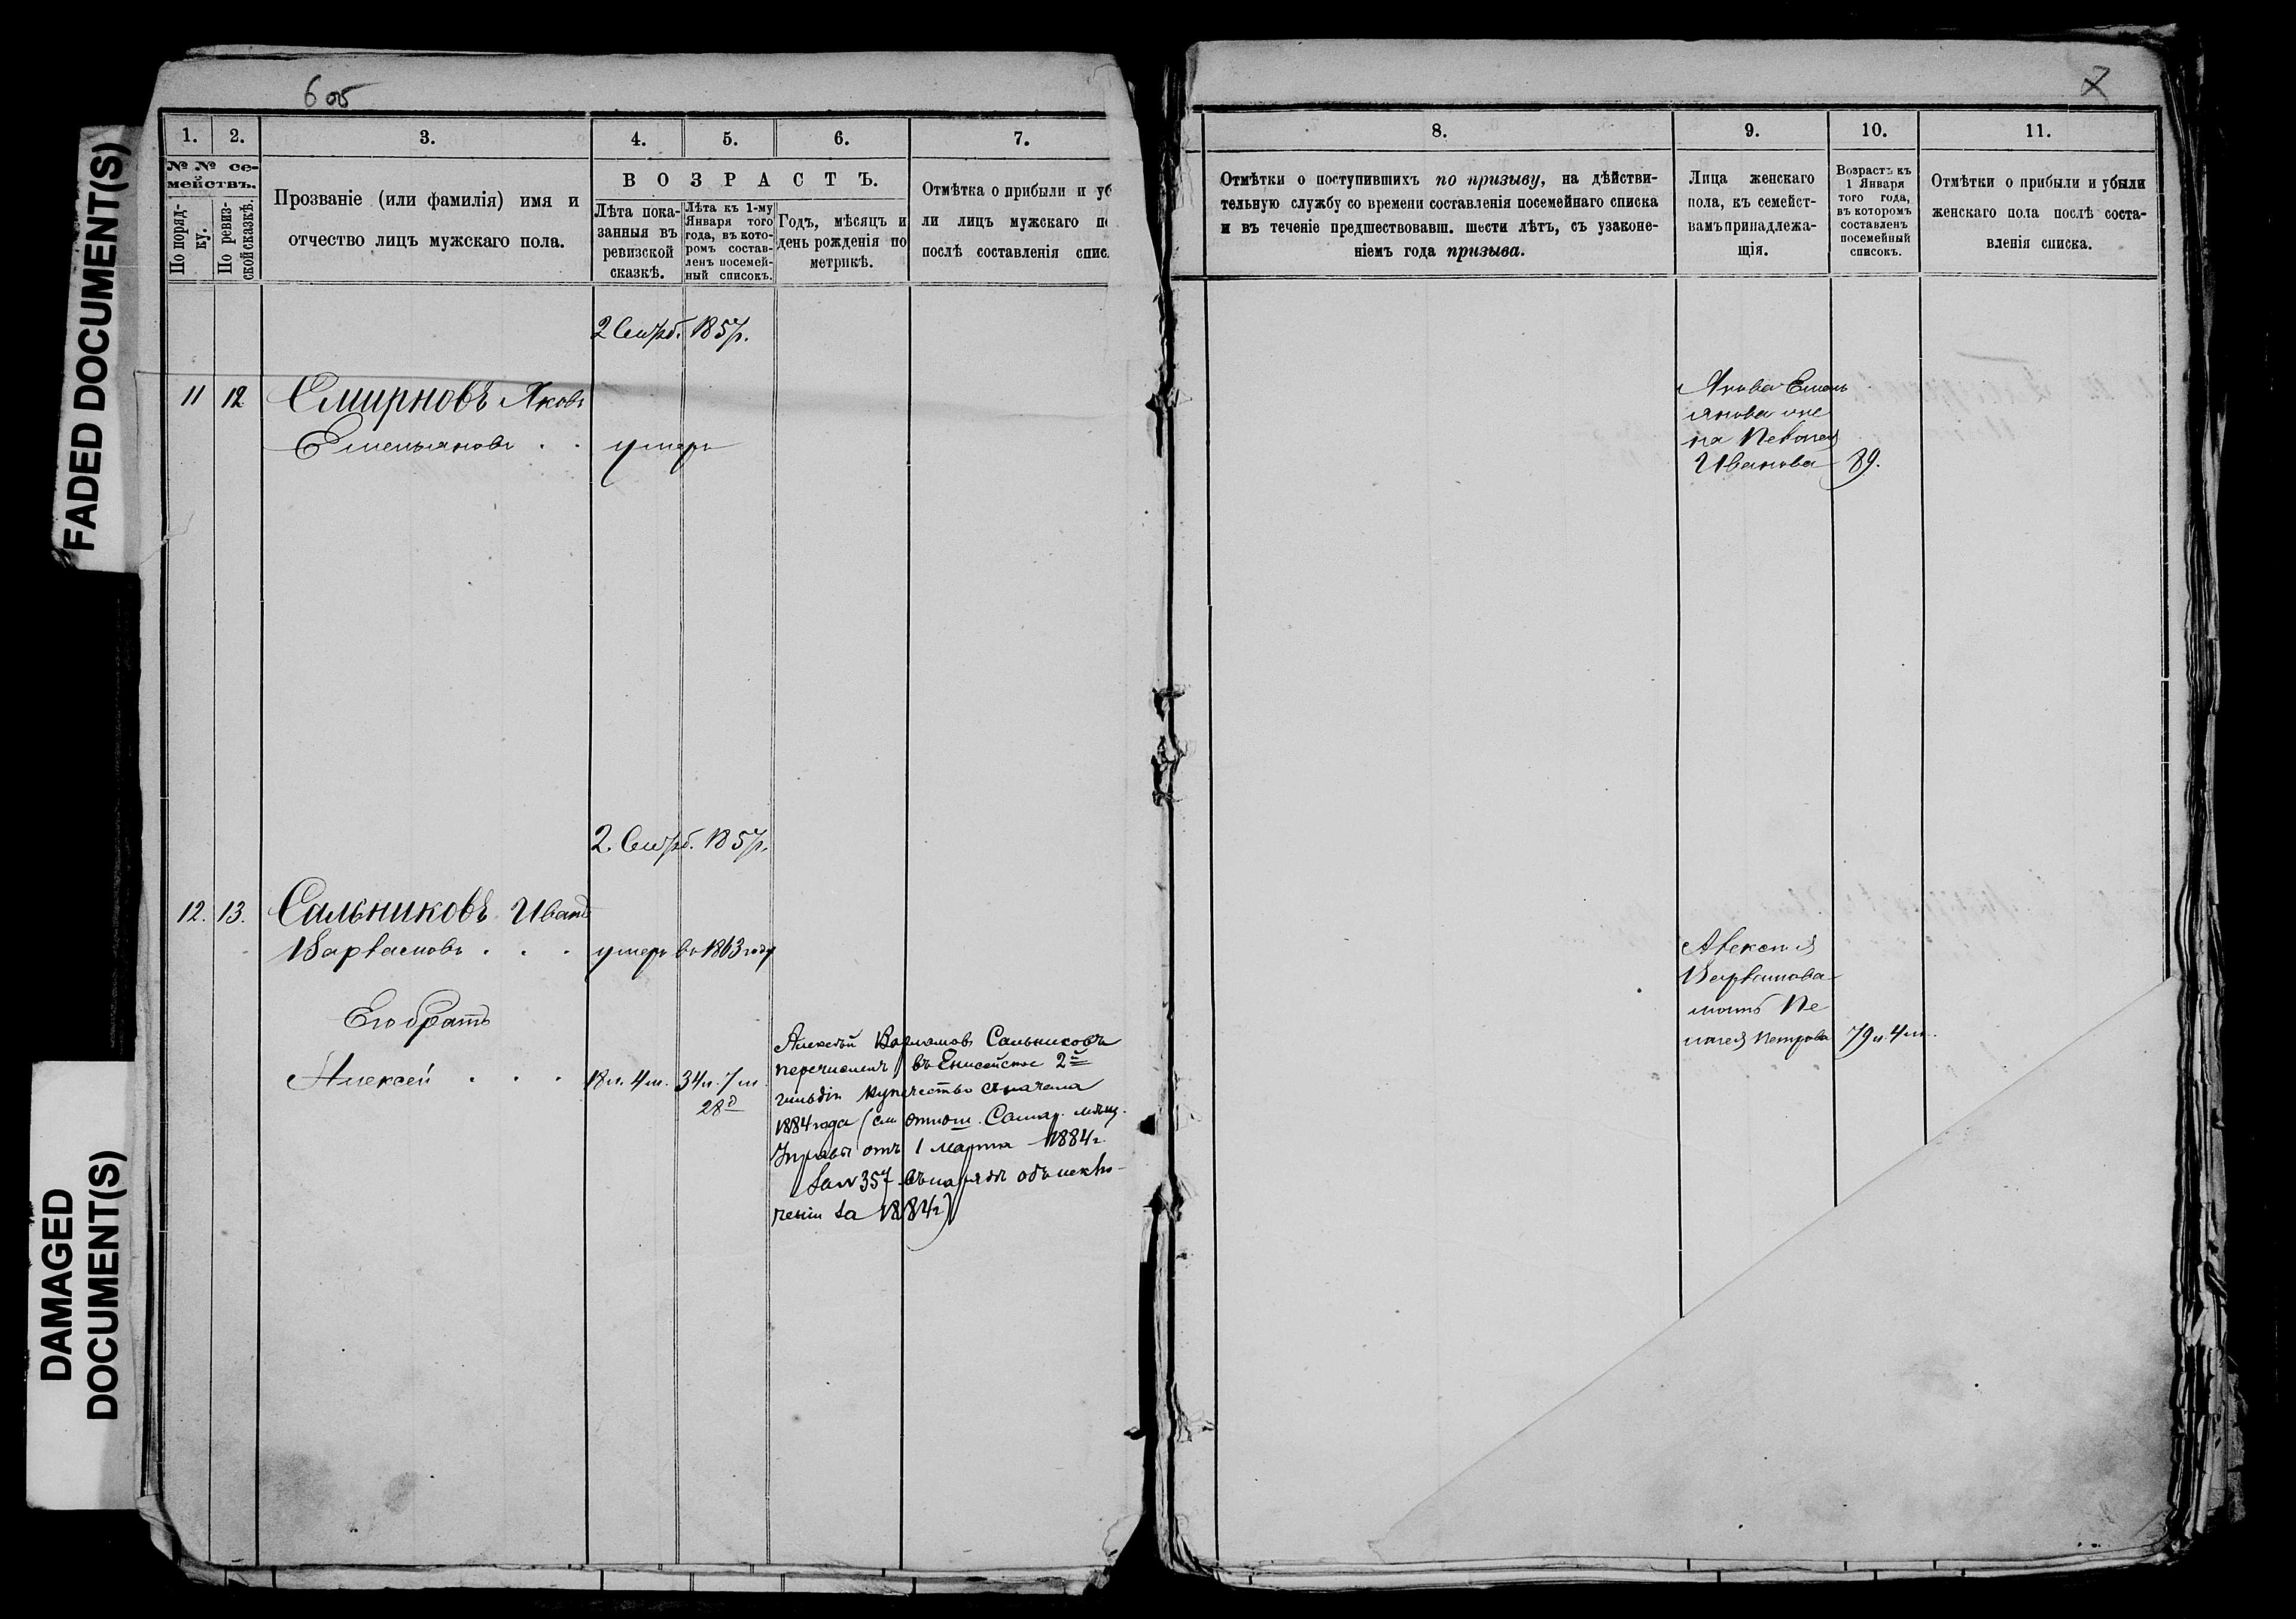 FADED DOCUMENT(S)
DAMAGED
DOCUMENT(S)
6 об
1. 2. 3. 4. 5. 6. 7.
№ № се-
мействъ.
По поряд-
ку.
По ревиз-
ской сказкѣ.
Прозваніе (или фамилія) имя и
отчество лицъ мужскаго пола.
ВОЗРАСТЪ.
Лѣта пока-
занныя въ
ревизской
сказкѣ.
Лѣта къ 1-му
Января того
года, въ кото-
ромъ состав-
ленъ посемей-
ный списокъ.
Годъ, мѣсяцъ и
день рожденія по
метрикѣ.
Отмѣтка о прибыли и уб
ли лицъ мужскаго по
послѣ составленія спис
2 1857г.
11 12 Смирновъ Яковъ
Емельяновъ . . умеръ
2 1857г.
12. 13. Сальниковъ Иванъ
Варламовъ . . . умеръ въ 1863 году
Его братъ
Алексей . . . 18л. 4м. 34л. 7м.
28д
Алексѣй Варламовъ Сальниковъ
перечисленъ въ Енисейское 2й
гильдіи купечество съ начала
1884 года (см. отнош. Самар. мѣщ.
Управы отъ 1 марта 1884г.
за № 357 въ нарядѣ объ исклю-
ченіи за 1884г)
7
8. 9. 10. 11.
Отмѣтки о поступившихъ по призыву, на дѣйстви-
тельную службу со времени составленія посемейнаго списка
и въ теченіе предшествовавш. шести лѣтъ, съ узаконе-
ніемъ года призыва.
Лица женскаго
пола, къ семейст-
вамъ принадлежа-
щія.
Возрастъ къ
1 Января
того года,
въ которомъ
составленъ
посемейный
списокъ.
Отмѣтки о прибыли и убыли
женскаго пола послѣ соста-
вленія списка.
Якова Емель
янова же
на
Иванова 89.
Алексея
Варламова
мать Пе
лагея Петрова 79л. 4м.